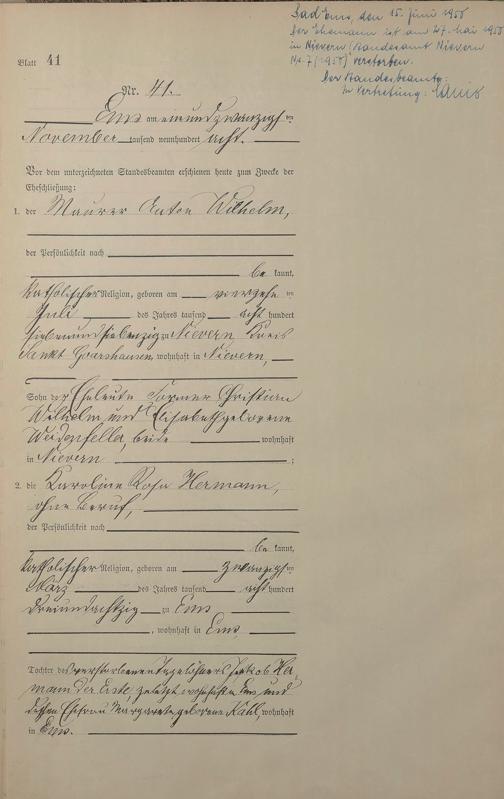 Bad Ems, den 15. Juni 1950
Der Ehemann ist am 27. Mai 1950
in Nievern (Standesamt Nievern
Nr. 7/1950) verstorben.
Der Standesbeamte:
In Vertretung:
Blatt 41
Nr. 41.
Ems am einundzwanzigsten
November tausend neunhundert acht.
Vor dem unterzeichneten Standesbeamten erschienen heute zum Zwecke der
Eheschließung:
1. der Maurer Anton Wilhelm,
der Persönlichkeit nach
be kannt,
katholischer Religion, geboren am vierzehnten
Juli des Jahres tausend acht hundert
siebenundsiebenzig zu Nievern, Kreis
Sankt Goarshausen, wohnhaft in Nievern,
Sohn der Eheleute Christian
Wilhelm und Elisabeth geborene
beide wohnhaft
in Nievern ;
2. die Karoline Rosa Hermann,
ohne Beruf,
der Persönlichkeit nach
be kannt,
katholischer Religion, geboren am zwanzigsten
März des Jahres tausend acht hundert
dreiundachtzig zu Ems
, wohnhaft in Ems
Tochter des verstorbenen Tagelöhners Jakob Her-
mann der Erste, zuletzt wohnhaft in Ems und
dessen Ehefrau Margarete geborene Kahl, wohnhaft
in Ems.